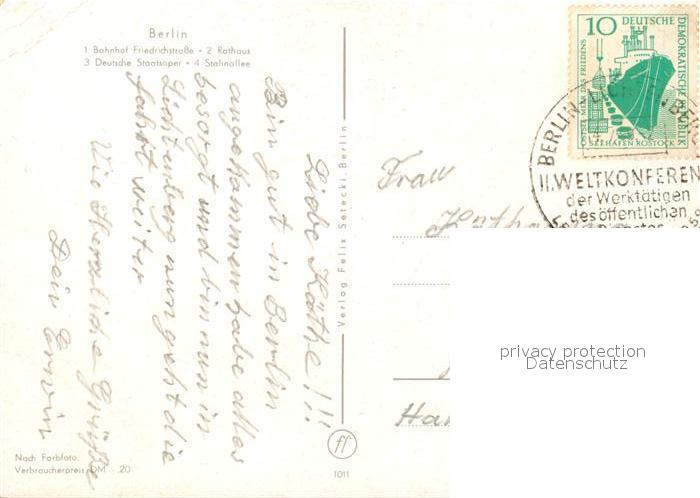 Berlin
1 Bahnhof Friedrichstraße • 2 Rathaus
3 Deutsche Staatsoper • 4 Stalinallee
Liebe Käthe!!!
Bin gut in Berlin
angekommen habe alles
besorgt und bin nun in
Lichtenberg nun geht die
fahrt weiter
Viele Herzliche Grüße
Dein Erwin
Nach Farbfoto.
Verbraucherpreis DM -.20
Verlag Felix Setecki, Berlin
ff
1011
10 DEUTSCHE
DEMOKRATISCHE REPUBLIK
OSTSEE-MEER DES FRIEDENS
SEEHAFEN ROSTOCK
BERLIN
II. WELTKONFEREN
der Werktätigen
des öffentlichen
Frau
privacy protection
Datenschutz